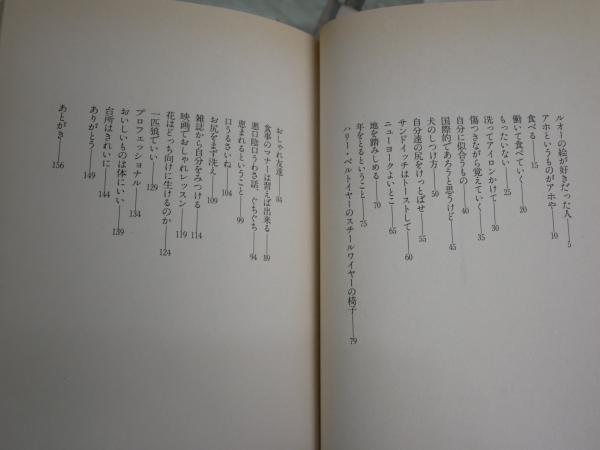 ルオーの絵が好きだった人——5
アホというものがアホや——10
食べる——15
働いて食べていく——20
もったいない——25
洗ってアイロンかけて——30
傷つきながら覚えていく——35
自分に似合うもの——40
国際的であろうと思うけど——45
犬のしつけ方——50
自分達の尻をけっとばせ——55
サンドイッチはトーストして——60
ニューヨークよいとこ——65
地を踏みしめる——70
年をとるということ——75
ハリー・ベルトイヤーのスチールワイヤーの椅子——79
おしゃれな友達——84
食事のマナーは習えば出来る——89
悪口陰口うわさ話、ぐちぐち——94
恵まれるということ——99
口うるさいね——104
お尻をまず洗え——109
雑誌から自分をみつける——114
映画でおしゃれレッスン——119
花はどっち向けに生けるのか——124
一匹狼でいい——129
プロフェッショナル——134
おいしいものは体にいい——139
台所はきれいに——144
ありがとう——149
あとがき——156